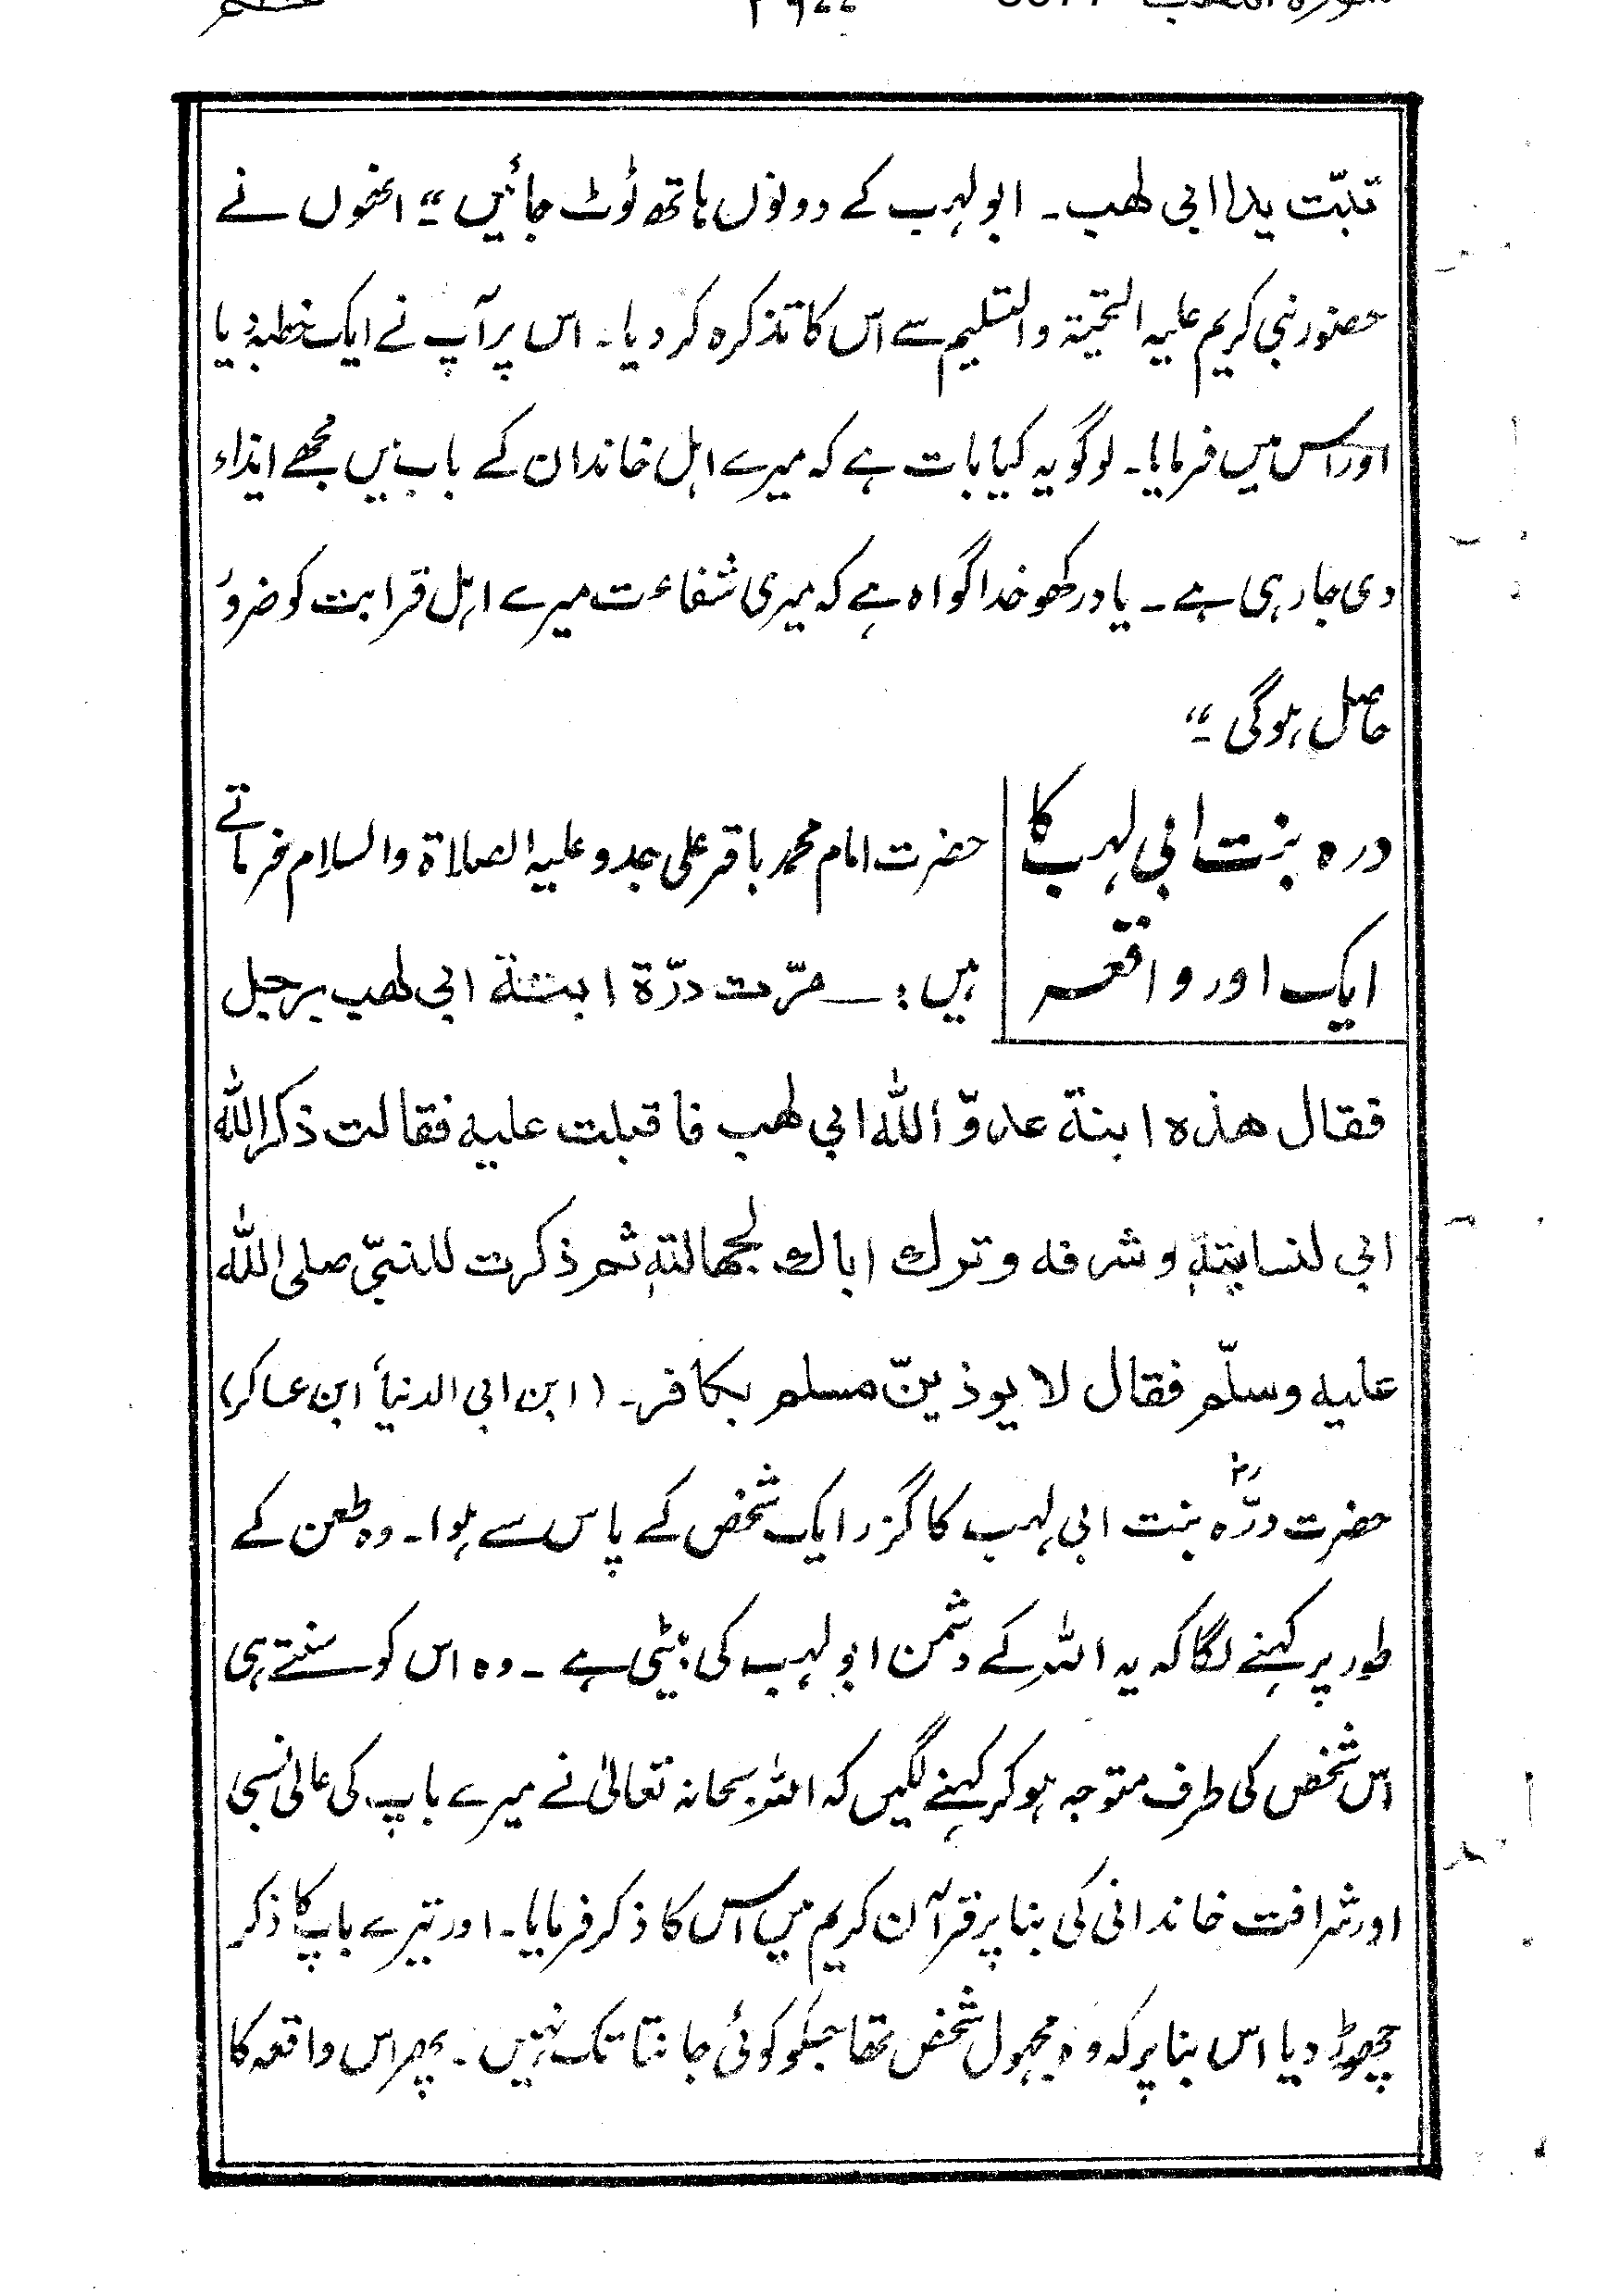 تبّت یدا ابی لھب۔ ابولہب کے دونوں ہاتھ ٹوٹ جائیں ‘‘ انھوں نے
حضور نبی کریم علیہ التحیۃ والتسلیم سے اس کا تذکرہ کر دیا۔ اس پر آپ نے ایک خطبہ دیا
اور اس میں فرمایا۔ لوگو یہ کیا بات ہے کہ میرے اہل خاندان کے باب میں مجھے ایذاء
دی جا رہی ہے۔ یاد رکھو خدا گواہ ہے کہ میری شفاعت میرے اہل قرابت کو ضرور
حاصل ہوگی ‘‘
درہ بنت ابی لہب کا
ایک اور واقعہ
حضرت امام محمد باقر علی جدہ وعلیہ الصلاۃ والسلام فرماتے
ہیں :۔ مرّت درّۃ ابنۃ ابی لھب برجل
فقال ھذہ ابنۃ عدوّ اللہ ابی لھب فاقبلت علیہ فقالت ذکر اللہ
ابی لنسابتہٖ وشرفہ وترک اباك لجھالتہٖ ثم ذکرت للنبیّ صلی اللہ
علیہ وسلّم فقال لا یوذینّ مسلم بکافر۔ (ابن ابی الدنیا، ابن عساکر)
حضرت درّہ رض بنت ابی لہب کا گزر ایک شخص کے پاس سے ہوا۔ وہ طعن کے
طور پر کہنے لگا کہ یہ اللہ کے دشمن ابولہب کی بیٹی ہے۔ وہ اس کو سنتے ہی
اس شخص کی طرف متوجہ ہو کر کہنے لگیں کہ اللہ سبحانہ تعالیٰ نے میرے باپ کی عالی نسبی
اور شرافت خاندانی کی بنا پر قرآن کریم میں اس کا ذکر فرمایا۔ اور تیرے باپ کا ذکر
چھوڑ دیا اس بنا پر کہ وہ مجہول شخص تھا جسکو کوئی جانتا تک نہیں۔ پھر اس واقعہ کا